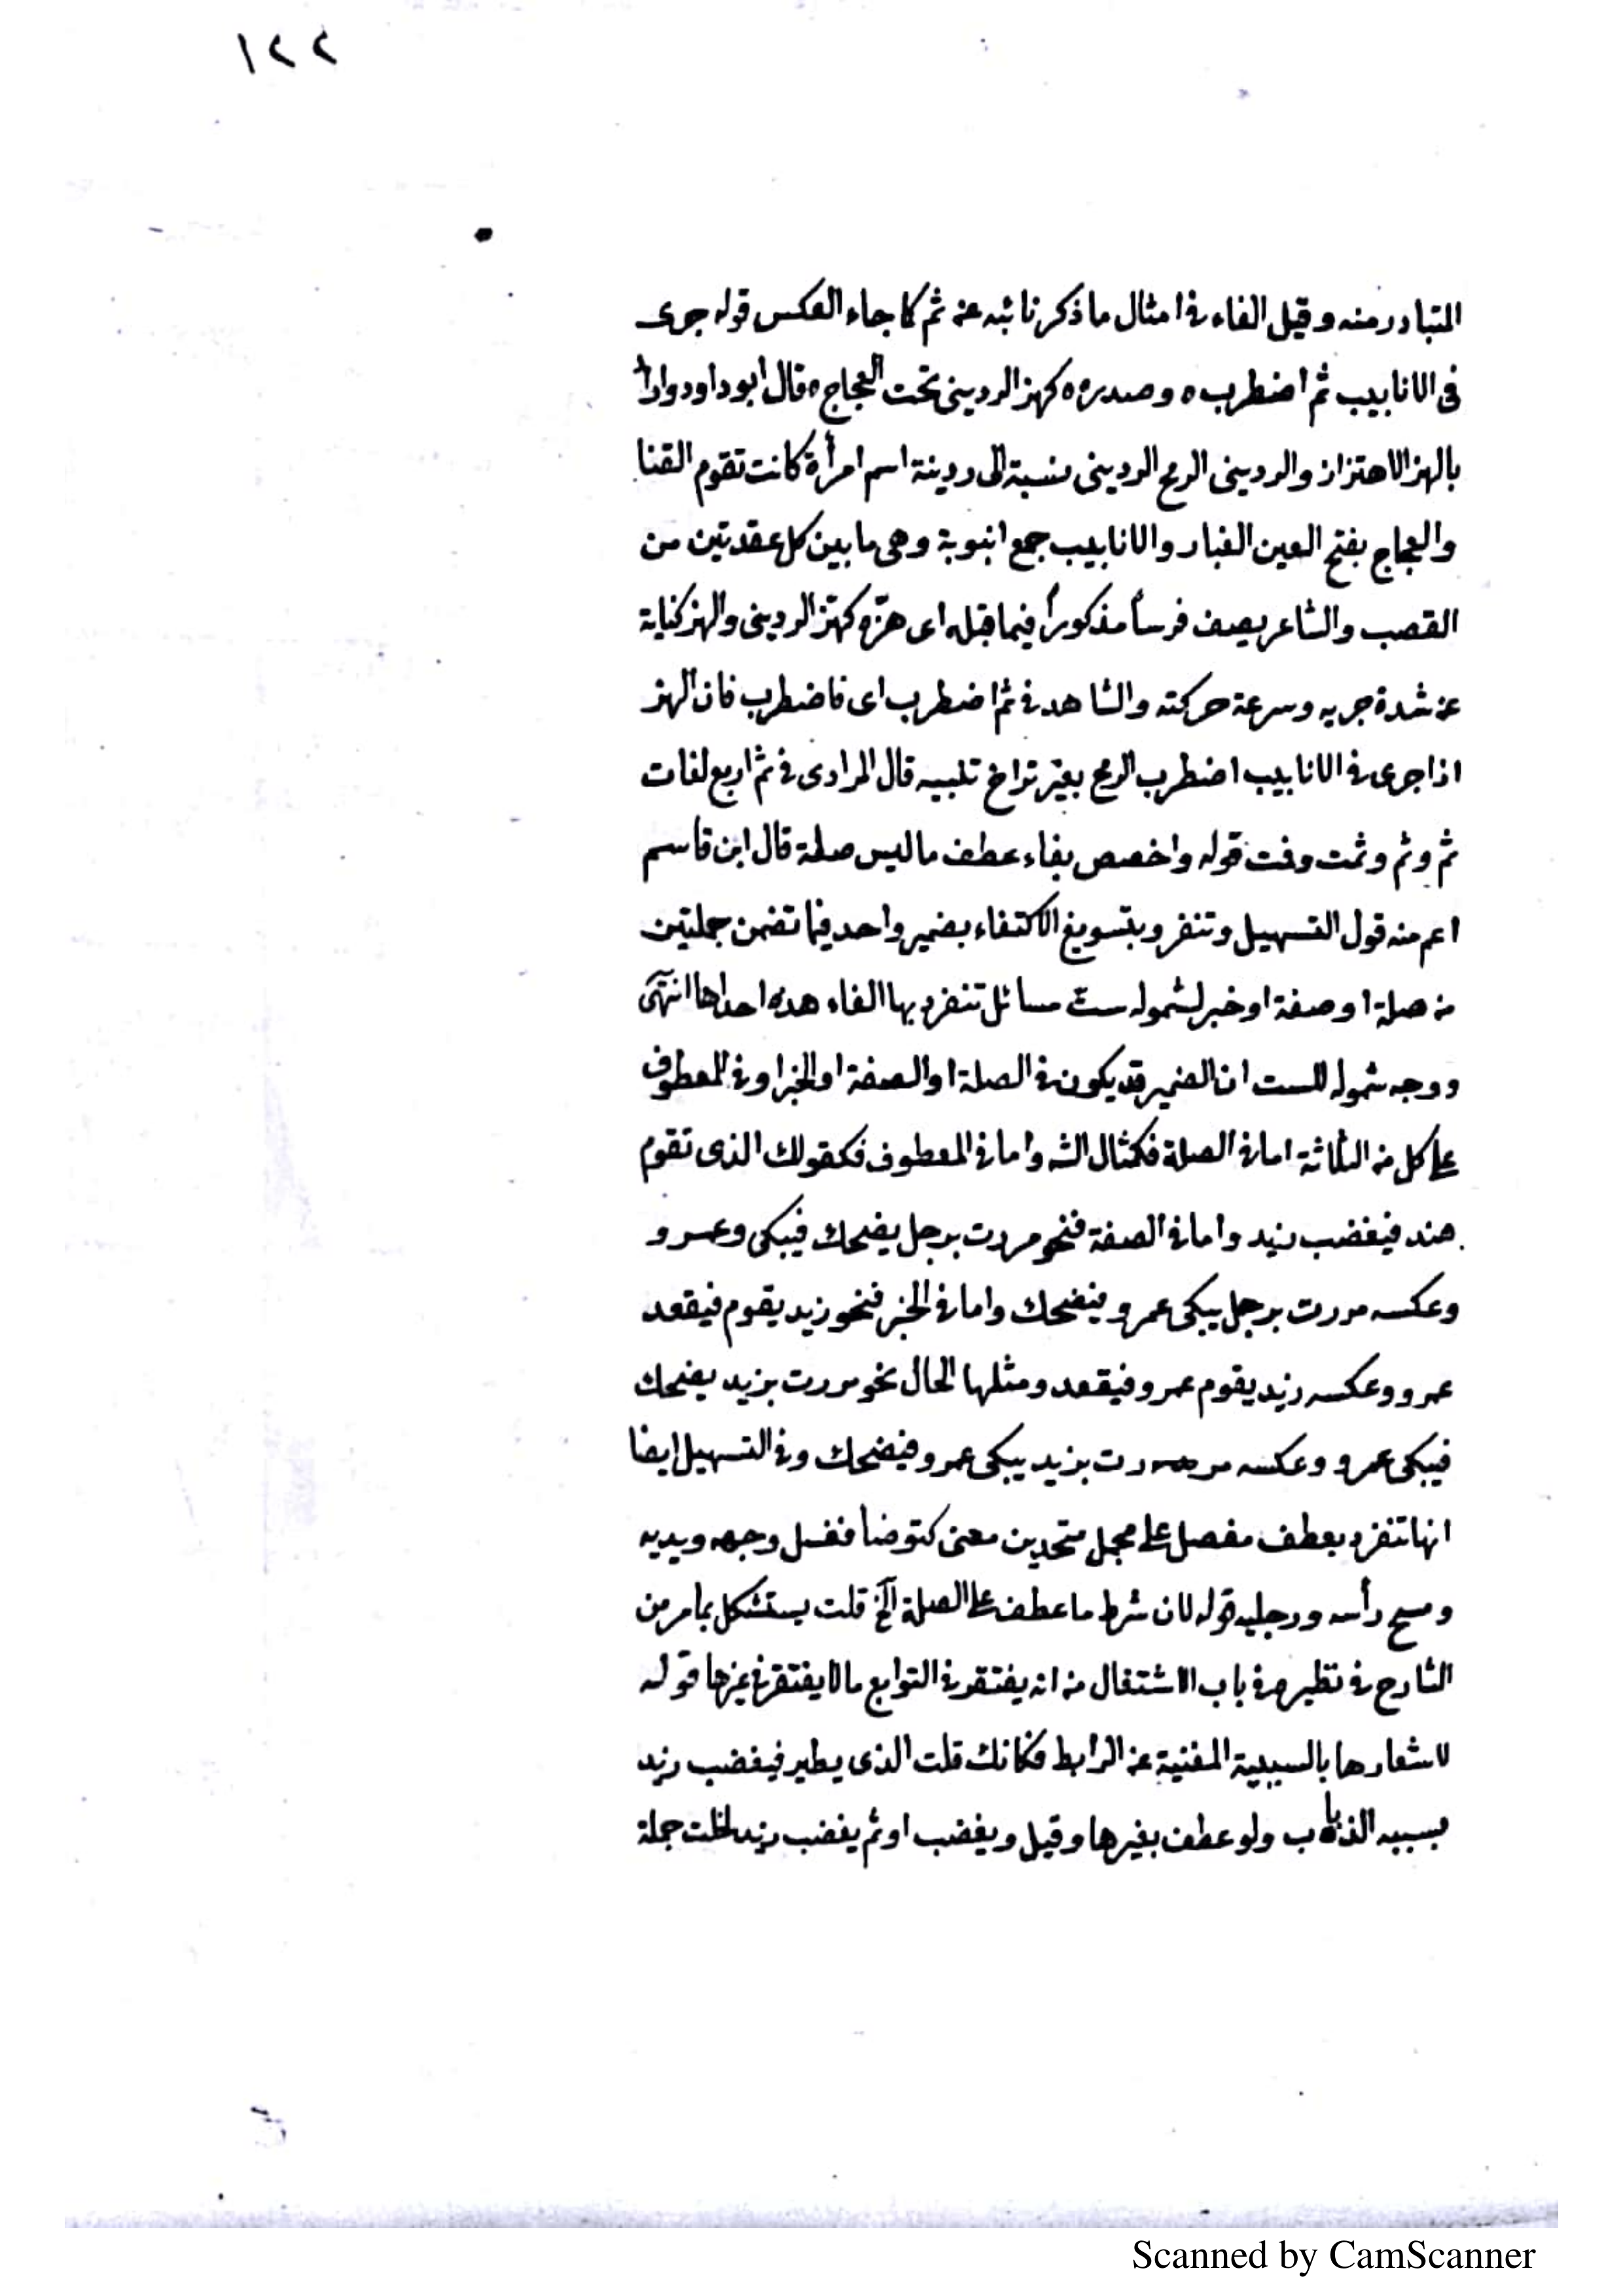 ١٢٢
المتبادر منه وقيل الفاء في امثال ما ذكر نائبه عن ثم كما جاء العكس قوله جرى
فى الانابيب ثم اضطرب ه وصدره ه كهز الردينى تحت العجاج ه قال ابو داود واراد
بالهز الاهتزاز والردينى الرمح الردينى نسبة الى ردينة اسم امرأة كانت تقوم القنا
والعجاج بفتح العين الغبار والانابيب جمع انبوبة وهى ما بين كل عقدتين من
القصب والشاعر يصف فرسا مذكورا فيما قبله اى هزه كهز الردينى والهز كناية
عن شدة جريه وسرعة حركته والشاهد في ثم اضطرب اى فاضطرب فان الهز
اذا جرى في الانابيب اضطرب الرمح بغير تراخ تنبيه قال المرادى في ثم اربع لغات
ثم وثم وثمت وفت قوله واخصص بفاء عطف ما ليس صلة قال ابن قاسم
اعم منه قول التسهيل وتنفرد بتسويغ الاكتفاء بضمير واحد فيما تضمن جملتين
من صلة او صفة او خبر لشموله ست مسائل تنفرد بها الفاء هذه احداها انتهى
ووجه شموله للست ان الضمير قد يكون في الصلة او الصفة او الخبر او في المعطوف
على كل من الثلاثة اما في الصلة فكمثال الشه واما في المعطوف فكقولك الذى تقوم
هند فيغضب زيد واما في الصفة فنحو مررت برجل يضحك فيبكى وعمرو
وعكسه مررت برجل يبكى عمرو فيضحك واما في الخبر فنحو زيد يقوم فيقعد
عمرو وعكسه زيد يقوم عمرو فيقعد ومثلها الحال نحو مررت بزيد يضحك
فيبكى عمرو وعكسه مررت بزيد يبكى عمرو فيضحك وفي التسهيل ايضا
انها تنفرد بعطف مفصل على مجمل متحدين معنى كتوضأ فغسل وجهه ويديه
ومسح رأسه ورجليه قوله لان شرط ما عطف على الصلة الخ قلت يستشكل بما مر من
الشارح في نظيره في باب الاشتغال من انه يغتفر في التوابع ما لا يغتفر في غيرها قوله
لاشعارها بالسببية المغنية عن الرابط فكانك قلت الذى يطير فيغضب زيد
بسببه الذباب ولو عطف بغيرها وقيل ويغضب او ثم يغضب زيد لخلت جملة
Scanned by CamScanner